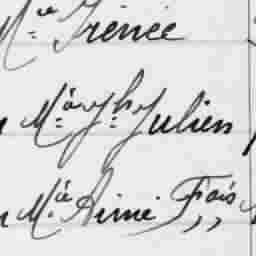 Mie Irénée
Mie Jh Julien
Mie Aimé Frois